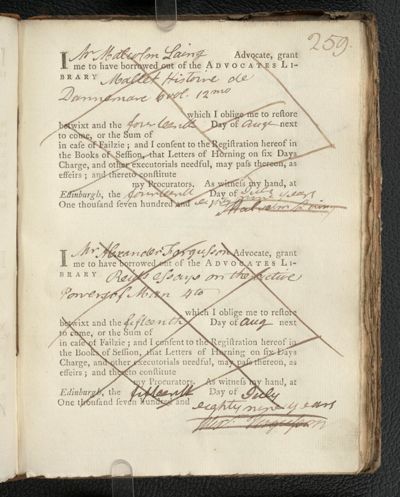 259.
I Mr Malcolm Laing Advocate, grant
me to have borrowed out of the ADVOCATES LI-
BRARY Mallet Histoire de
Dannemarc 6 vol. 12mo
which I oblige me to restore
betwixt and the fourteenth Day of Augt next
to come, or the Sum of
in case of Failzie; and I consent to the Registration hereof in
the Books of Session, that Letters of Horning on six Days
Charge, and other executorials needful, may pass thereon, as
effeirs; and thereto constitute
my Procurators. As witness my hand, at
Edinburgh, the fourteenth Day of July
One thousand seven hundred and eighty nine years
Malcolm Laing
I Mr Alexander Fergusson Advocate, grant
me to have borrowed out of the ADVOCATES LI-
BRARY Reid's essays on the active
Powers of Man 4to
which I oblige me to restore
betwixt and the fifteenth Day of Aug next
to come, or the Sum of
in case of Failzie; and I consent to the Registration hereof in
the Books of Session, that Letters of Horning on six Days
Charge, and other executorials needful, may pass thereon, as
effeirs; and thereto constitute
my Procurators. As witness my hand, at
Edinburgh, the fifteenth Day of July
One thousand seven hundred and
eighty nine years
Fergusson